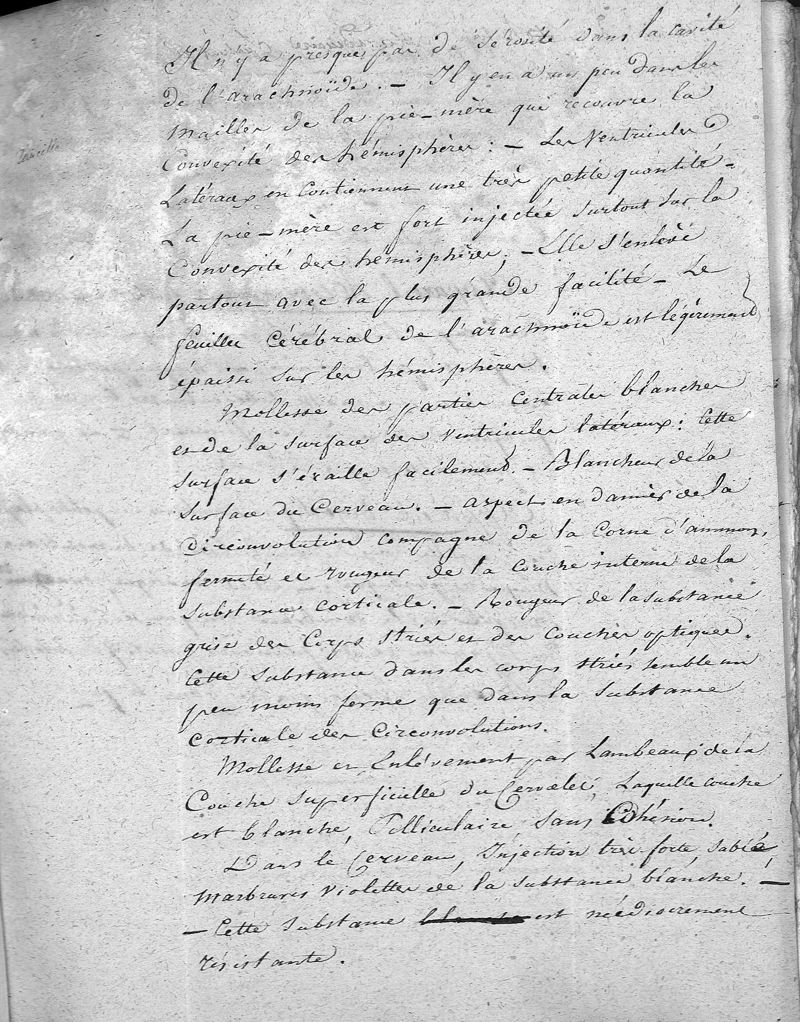 Il n'y a presque pas de sérosité dans la cavité
de l'arachnoïde. — Il y en a un peu dans les
mailles de la pie-mère qui recouvre la
Convexité des hémisphères : — Les Ventricules
Latéraux en Contiennent une très petite quantité —
La pie-mère est fort injectée surtout sur la
Convexité des hémisphères, — Elle s'enlève
partout avec la plus grande facilité — Le
feuillet Cérébral de l'arachnoïde est légèrement
épaissi sur les hémisphères.
Mollesse des parties Centrales blanches
et de la surface des Ventricules latéraux : Cette
surface s'éraille facilement. — Blancheur de la
surface du Cerveau. — aspect en damier de la
Circonvolution compagne de la Corne d'ammon,
fermeté et rougeur de la couche interne de la
substance corticale. — Rougeur de la substance
grise des Corps striés et des Couches optiques.
Cette Substance dans les corps striés semble un
peu moins ferme que dans la Substance
Corticale des Circonvolutions.
Mollesse et Enlèvement par Lambeaux de la
Couche superficielle du Cervelet, Laquelle couche
est blanche, Pelliculaire sans Cohésion.
Dans le Cerveau, Injection très forte sablée
Marbrures violettes de la substance blanche. —
— Cette substance est médiocrement
résistante.